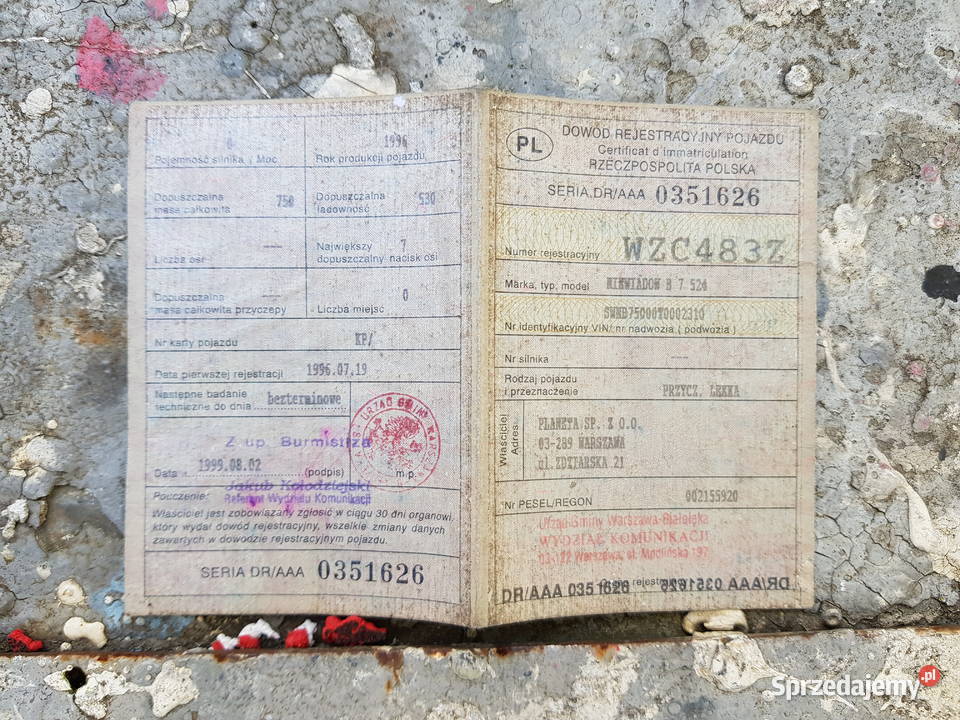 0
Pojemność silnika / Moc
1996
Rok produkcji pojazdu
Dopuszczalna
masa całkowita
750
Dopuszczalna
ładowność
530
---
Liczba osi
Największy
dopuszczalny nacisk osi
7
Dopuszczalna
masa całkowita przyczepy
---
Liczba miejsc
0
Nr karty pojazdu
KP/
Data pierwszej rejestracji 1996.07.19
Następne badanie
techniczne do dnia bezterminowe
Z up. Burmistrza
Data 1999.08.02 (podpis) m.p.
Jakub Kołodziejski
Referent Wydziału Komunikacji
Pouczenie:
Właściciel jest zobowiązany zgłosić w ciągu 30 dni organowi,
który wydał dowód rejestracyjny, wszelkie zmiany danych
zawartych w dowodzie rejestracyjnym pojazdu.
SERIA DR/AAA 0351626
URZĄD GMINY
PL
DOWÓD REJESTRACYJNY POJAZDU
Certificat d'immatriculation
RZECZPOSPOLITA POLSKA
SERIA DR/AAA 0351626
Numer rejestracyjny WZC483Z
Marka, typ, model NIEWIADOW B 7 526
SWNB75000T0002310
Nr identyfikacyjny VIN/ nr nadwozia ( podwozia )
Nr silnika ---
Rodzaj pojazdu
i przeznaczenie PRZYCZ. LEKKA
Właściciel
Adres
PLANETA SP. Z O.O.
03-289 WARSZAWA
Nr PESEL/REGON 002155920
Urząd Gminy Warszawa-Białołęka
WYDZIAŁ KOMUNIKACJI
03-122 Warszawa, ul. Modlińska 197
DR/AAA 0351626
DR/AAA 0351626
Sprzedajemy.pl